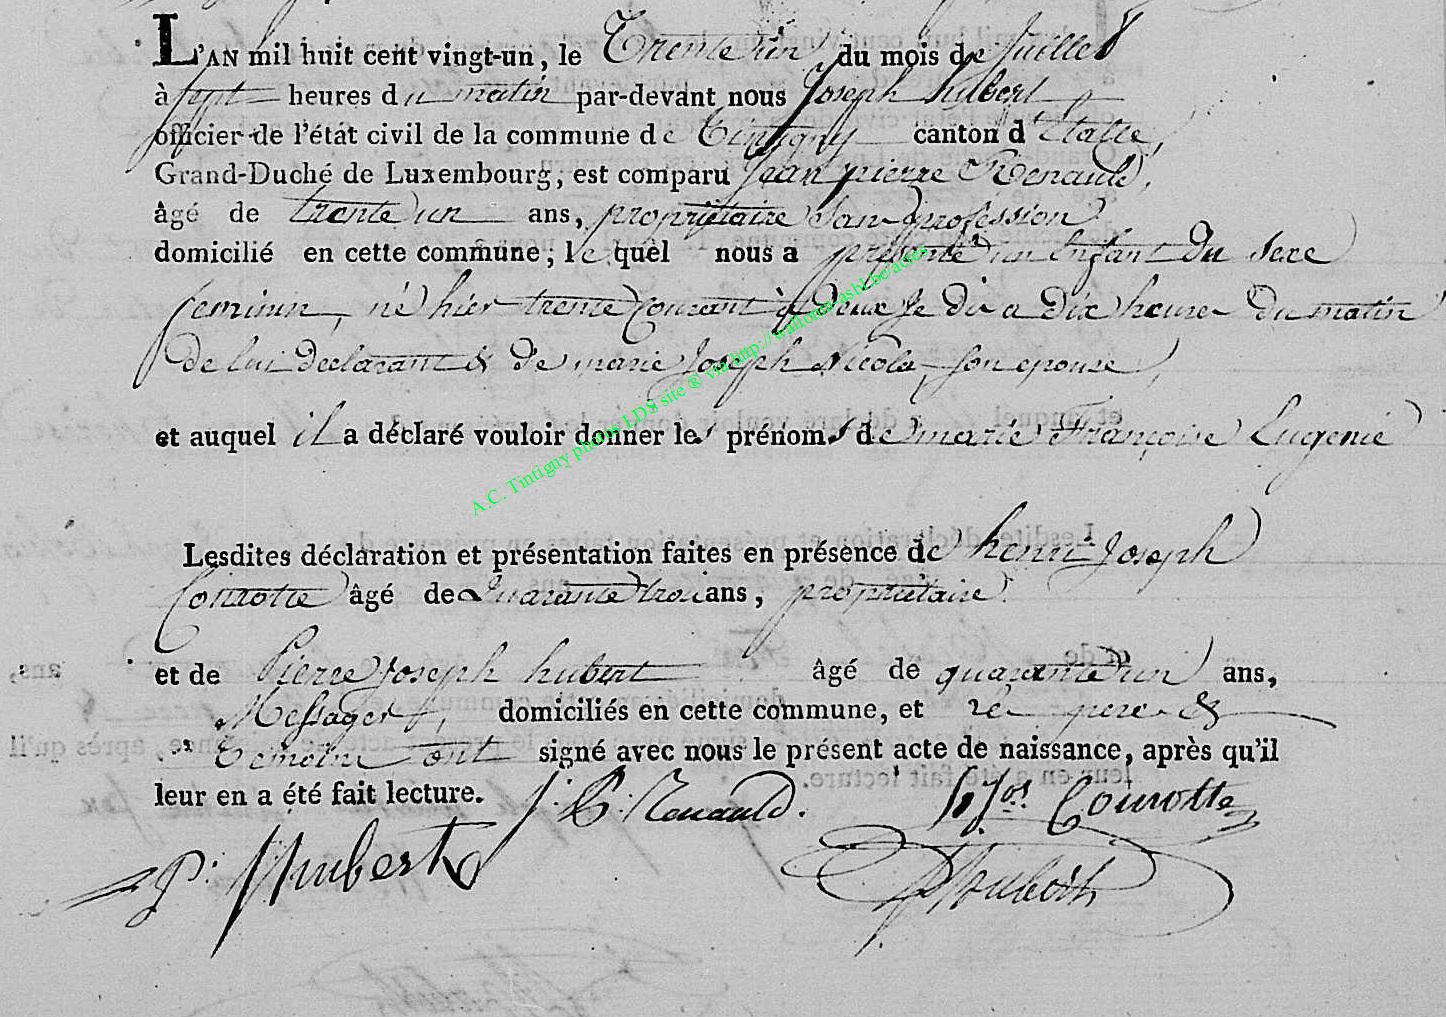 L'AN mil huit cent vingt-un, le Trente un du mois de Juillet
à sept heures du matin par-devant nous Joseph hubert
officier de l'état civil de la commune de Tintigny canton d'Etalle,
Grand-Duché de Luxembourg, est comparu Jean pierre Renauld,
âgé de trente un ans, propriétaire San profession
domicilié en cette commune, lequel nous a presenté un Enfant du Sexe
feminin, né hier trente Courant à deux Je di a dix heures du matin
de lui declarant & de marie Joseph Nicola, Son epouse,
et auquel il a déclaré vouloir donner les prénoms de marie Françoise Eugenie
Lesdites déclaration et présentation faites en présence de henri Joseph
Courotte âgé de quarante trois ans, proprietaire
et de Pierre Joseph hubert âgé de quarante un ans,
Messager, domiciliés en cette commune, et le pere &
temoins ont signé avec nous le présent acte de naissance, après qu'il
leur en a été fait lecture. J. P. Renauld. h. Jos. Courotte
P. J hubert J hubert
A.C. Tintigny photos LDS site ® via http://